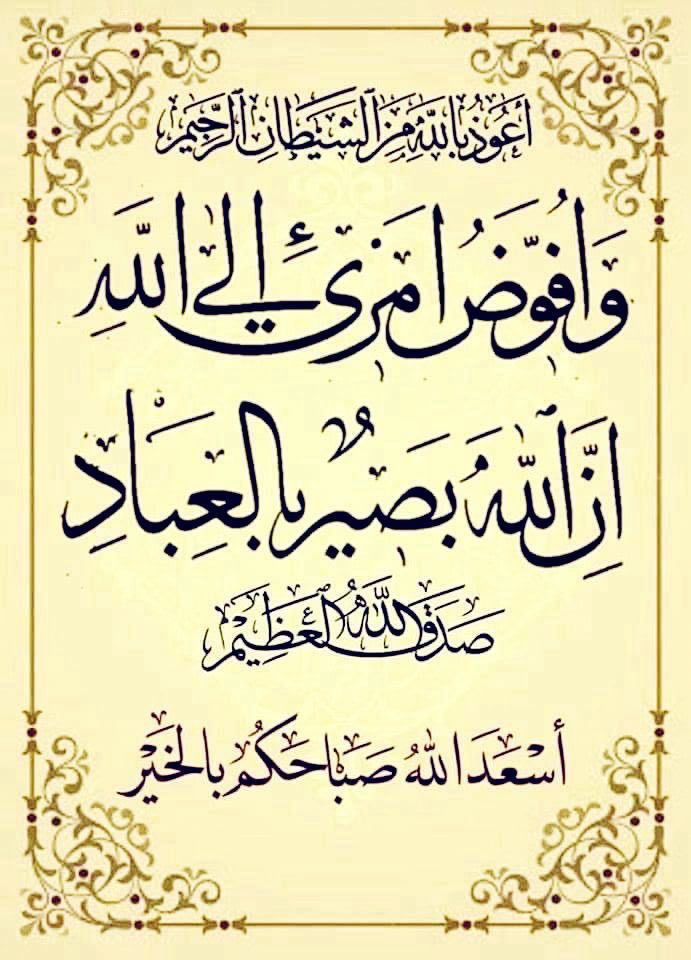 أَعُوذُ بِاللَّهِ مِنَ الشَّيْطَانِ الرَّجِيمِ
وَاُفَوِّضُ اَمْرِىٓ اِلَى اللّٰهِ
اِنَّ اللّٰهَ بَصِيرٌ بِالْعِبَادِ
صَدَقَ اللَّهُ الْعَظِيمُ
أَسْعَدَ اللهُ صَبَاحَكُم بِالْخَيْرِ